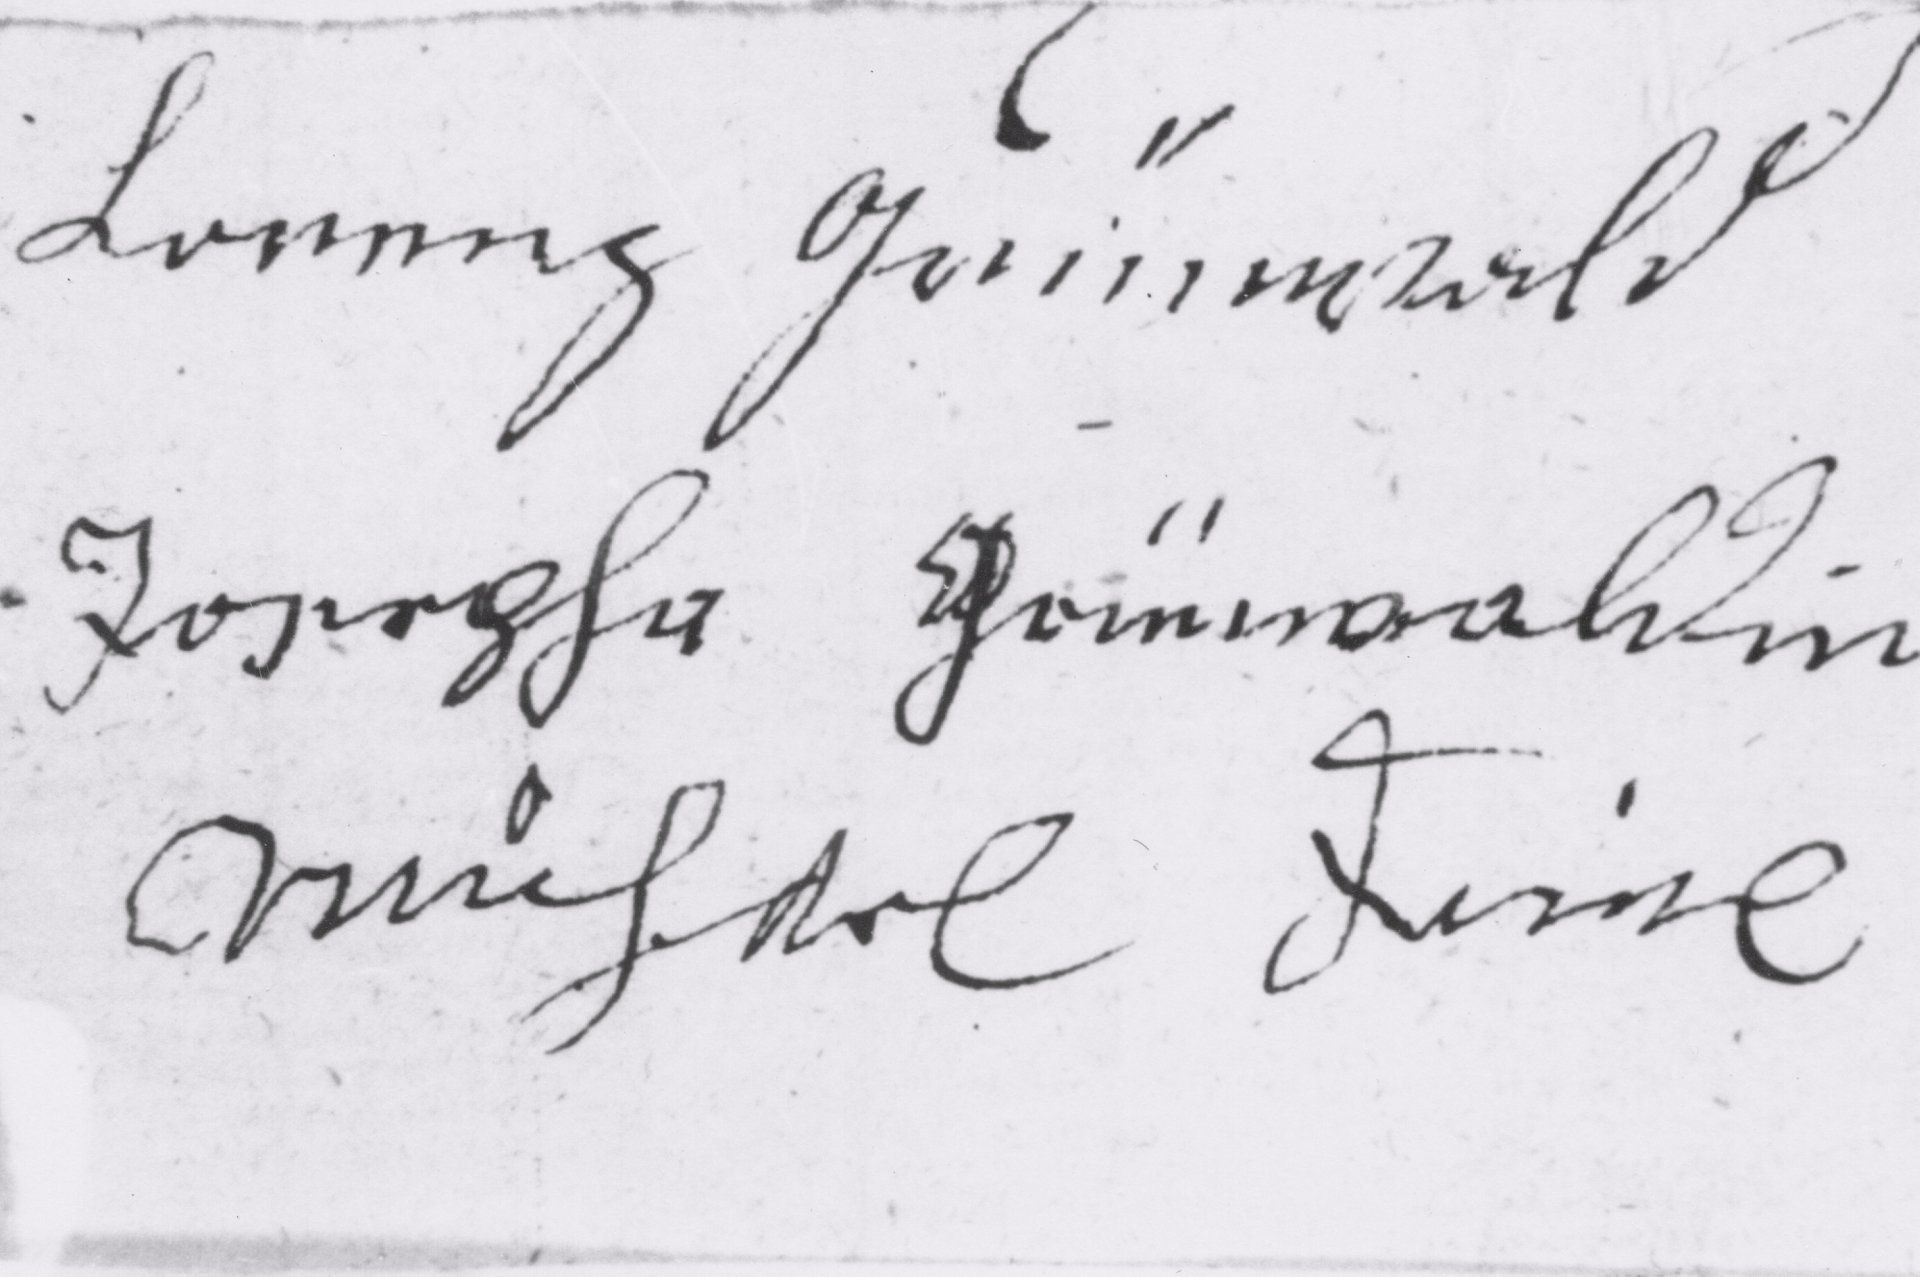 Lorenz Grünwald
Josepha Grünwaldin
Michael